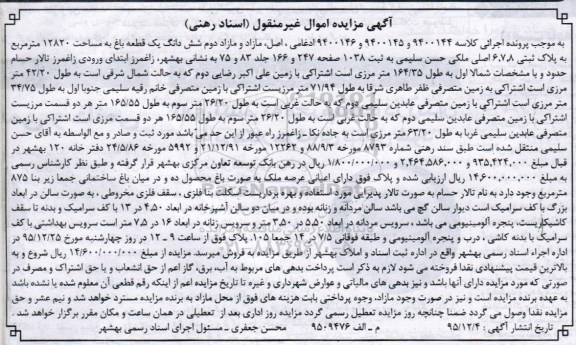 آگهی مزایده اموال غیرمنقول (اسناد رهنی)
به موجب پرونده اجرائی کلاسه ۹۴۰۰۱۴۴ و ۹۴۰۰۱۴۵ و ۹۴۰۰۱۴۶ ادغامی ، اصل، مازاد و مازاد دوم شش دانگ یک قطعه باغ به مساحت ۱۲۸۲۰ مترمربع
به پلاک ثبتی ۶،۷،۸ اصلی ملکی حسن سلیمی به ثبت ۱۰۳۸ صفحه ۲۴۷ و ۱۶۶ جلد ۸۳ و ۷۵ به نشانی بهشهر، زاغمرز ابتدای ورودی زاغمرز تالار حسام
حدود و یا مشخصات شمالا اول به طول ۱۶۴/۳۵ متر مرزی است اشتراکی با زمین علی اکبر رضایی دوم که به حالت شمال شرقی است به طول ۴۲/۲۰ متر
متر مرزی است اشتراکی به زمین متصرفی ظفر طاهری شرقا به طول ۷۱/۹۴ متر مرزیست اشتراکی با زمین متصرفی خانم رقیه سلیمی جنوبا اول به طول ۳۴/۷۵
متر مرزی است اشتراکی با زمین متصرفی عابدین سلیمی دوم که به حالت غربی است به طول ۲۶/۲۰ متر سوم به طول ۱۶۵/۵۵ متر هر دو قسمت مرزیست
اشتراکی با زمین متصرفی عابدین سلیمی دوم که به حالت غربی است به طول ۲۶/۲۰ متر سوم به طول ۱۶۵/۵۵ متر هر دو قسمت مرزی است اشتراکی با زمین
متصرفی عابدین سلیمی غربا به طول ۶۳/۲۰ متر مرزی است به جاده نکا ـ زاغمرز راه عبور از این حد می باشد مورد ثبت و صادر و مع الواسطه به آقای حسن
سلیمی منتقل شده است طبق سند رهنی شماره ۸۷۹۳ مورخه ۸۸/۹/۴ و ۱۲۲۶۲ مورخه ۲۱/۱۲/۹۱ و ۵۹۹۲ مورخه ۲۴/۵/۸۶ دفتر خانه ۱۲۰ بهشهر در
قبال مبلغ ۹۳۵،۴۲۴،۰۰۰ و ۲،۴۶۴،۵۸۶،۰۰۰ و ۱/۸۰۰/۰۰۰/۰۰۰ ریال در رهن بانک توسعه تعاون مرکزی بهشهر قرار گرفته و طبق نظر کارشناس رسمی
به مبلغ ۱۴،۶۰۰،۰۰۰،۰۰۰ ریال ارزیابی شده و پلاک فوق دارای اعیانی عرصه ملک به صورت باغ محصول ده و در میان باغ ساختمانی جمعا زیر بنا ۸۷۵
مترمربع وجود دارد به نام تالار حسام به صورت تالار پذیرایی مورد استفاده و بهره برداریست اسکلت بنا فلزی ، سقف فلزی مخروطی ، به صورت سالن در ابعاد
بزرگ با کف سرامیک است دیوار سالن گچ می باشد سالن مردانه و زنانه بوده و در میان دو سالن آشپزخانه در ابعاد ۴.۵۰ در ۱۲ با کف سرامیک و بدنه تا سقف
کاشیکاریست، پنجره آلومینیومی می باشد ، سرویس مردانه در ابعاد ۵.۵۰ در ۳.۵۰ متر و سرویس زنانه در ابعاد ۱۶ در ۷.۵ متر است سرویس بهداشتی با کف
سرامیک با بدنه کاشی ، درب و پنجره آلومینیومی و طبقه فوقانی ۷/۵ در ۱۴ جمعا ۱۰۵. پلاک فوق از ساعت ۹ ـ ۱۲ در روز چهارشنبه مورخ ۹۵/۱۲/۲۵ در
اداره اجراء اسناد رسمی بهشهر واقع در اداره ثبت اسناد و املاک بهشهر از طریق مزایده به فروش میرسد. مزایده از مبلغ ۱۴/۶۰۰/۰۰۰/۰۰۰ ریال شروع و به
بالاترین قیمت پیشنهادی نقدا فروخته می شود لازم به ذکر است پرداخت بدهی های مربوط به آب، برق، گاز اعم از حق انشعاب و یا حق اشتراک و مصرف در
صورتی که مورد مزایده دارای آنها باشد و نیز بدهی های مالیاتی و عوارض شهرداری و غیره تا تاریخ مزایده اعم از اینکه رقم قطعی آن معلوم شده یا نشده باشد
به عهده برنده مزایده است و نیز در صورت وجود مازاد، وجوه پرداختی بابت هزینه های فوق از محل مازاد به برنده مزایده مسترد خواهد شد و نیم عشر و حق
مزایده نقدا وصول می گردد ضمنا چنانچه روز مزایده تعطیل رسمی گردد مزایده روز اداری بعد از تعطیلی در همان ساعت و مکان مقرر برگزار خواهد شد .
تاریخ انتشار آگهی : ۹۵/۱۲/۴ م ـ الف ۹۵۰۹۴۷۶ محسن جعفری ـ مسئول اجرای اسناد رسمی بهشهر